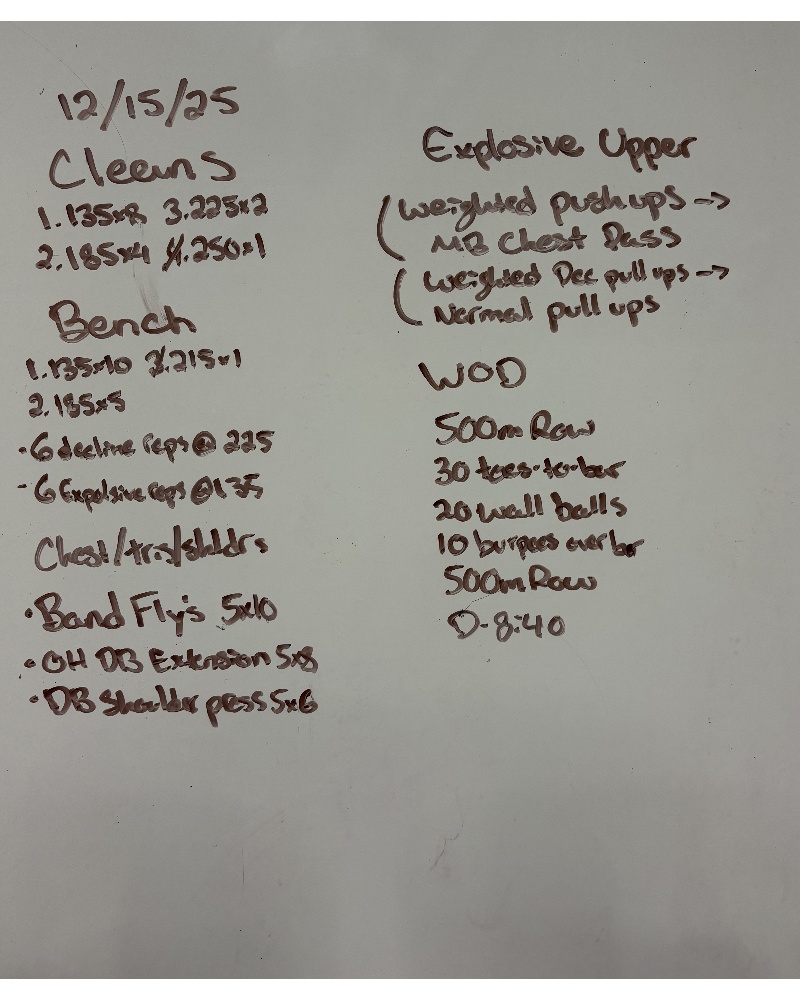 12/15/25
Cleans
1. 135x8 3. 225x2
2. 185x4 4. 250x1
Bench
1. 135x10 3. 215x1
2. 185x5
· 6 decline reps @ 225
- 6 Expolsive reps @ 135
Chest/tris/shldrs
· Band Fly's 5x10
· OH DB Extension 5x8
· DB Shoulder press 5x6
Explosive Upper
( weighted push ups ->
MB Chest Pass
( weighted Dec pull ups ->
Normal pull ups
WOD
500m Row
30 toes-to-bar
20 wall balls
10 burpees over bar
500m Row
D-8:40